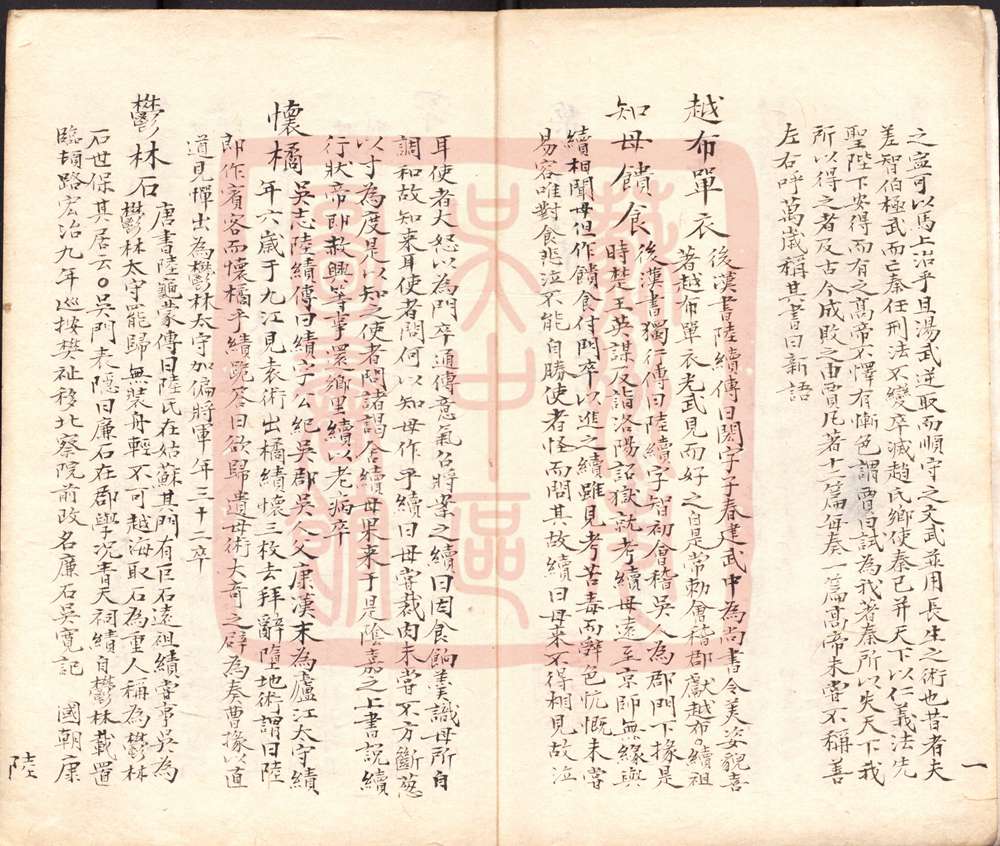 之寧可以馬上治乎且湯武逆取而順守之文武並用長生之術也昔者夫
差智伯極武而亡秦任刑法不變卒滅趙氏鄉使秦已并天下以仁義法先
聖陛下安得而有之高帝不懌有慚色謂賈曰試為我著秦所以失天下我
所以得之者及古今成敗之由賈凡著十二篇每奏一篇高帝未嘗不稱善
左右呼萬歲稱其書曰新語
越布單衣
後漢書陸續傳曰閎字子春建武中為尚書令美姿貌喜
著越布單衣光武見而好之自是常勅會稽郡獻越布○續祖
知母饋食
後漢書獨行傳曰陸續字智初會稽吳人為郡門下掾是
時楚王英謀反詣洛陽詔獄就考續母遠至京師無緣與
續相聞母但作饋食付門卒以進之續雖見考苦毒而辭色忼慨未嘗
易容唯對食悲泣不能自勝使者怪而問其故續曰母來不得相見故泣
一
耳使者大怒以為門卒通傳意氣召將案之續曰因食餉羹識母所自
調和故知來耳使者問何以知母作乎續曰母嘗裁肉未嘗不方斷葱
以寸為度是以知之使者問諸謁舍續母果來于是陰嘉之上書說續
行狀帝即赦興等事還鄉里續以老病卒
懷橘
吳志陸績傳曰績字公紀吳郡吳人父康漢末為廬江太守績
年六歲于九江見袁術出橘績懷三枚去拜辭墮地術謂曰陸
郎作賓客而懷橘乎績跪答曰欲歸遺母術大奇之辟為奏曹掾以直
道見憚出為鬱林太守加偏將軍年三十二卒
鬱林石
唐書陸龜蒙傳曰陸氏在姑蘇其門有巨石遠祖績嘗事吳為
鬱林太守罷歸無裝舟輕不可越海取石為重人稱為鬱林
石世保其居云○吳門表隱曰廉石在郡學况青天祠績自鬱林載置
臨頓路宏治九年巡按樊祉移北察院前改名廉石吳寬記 國朝康
陸